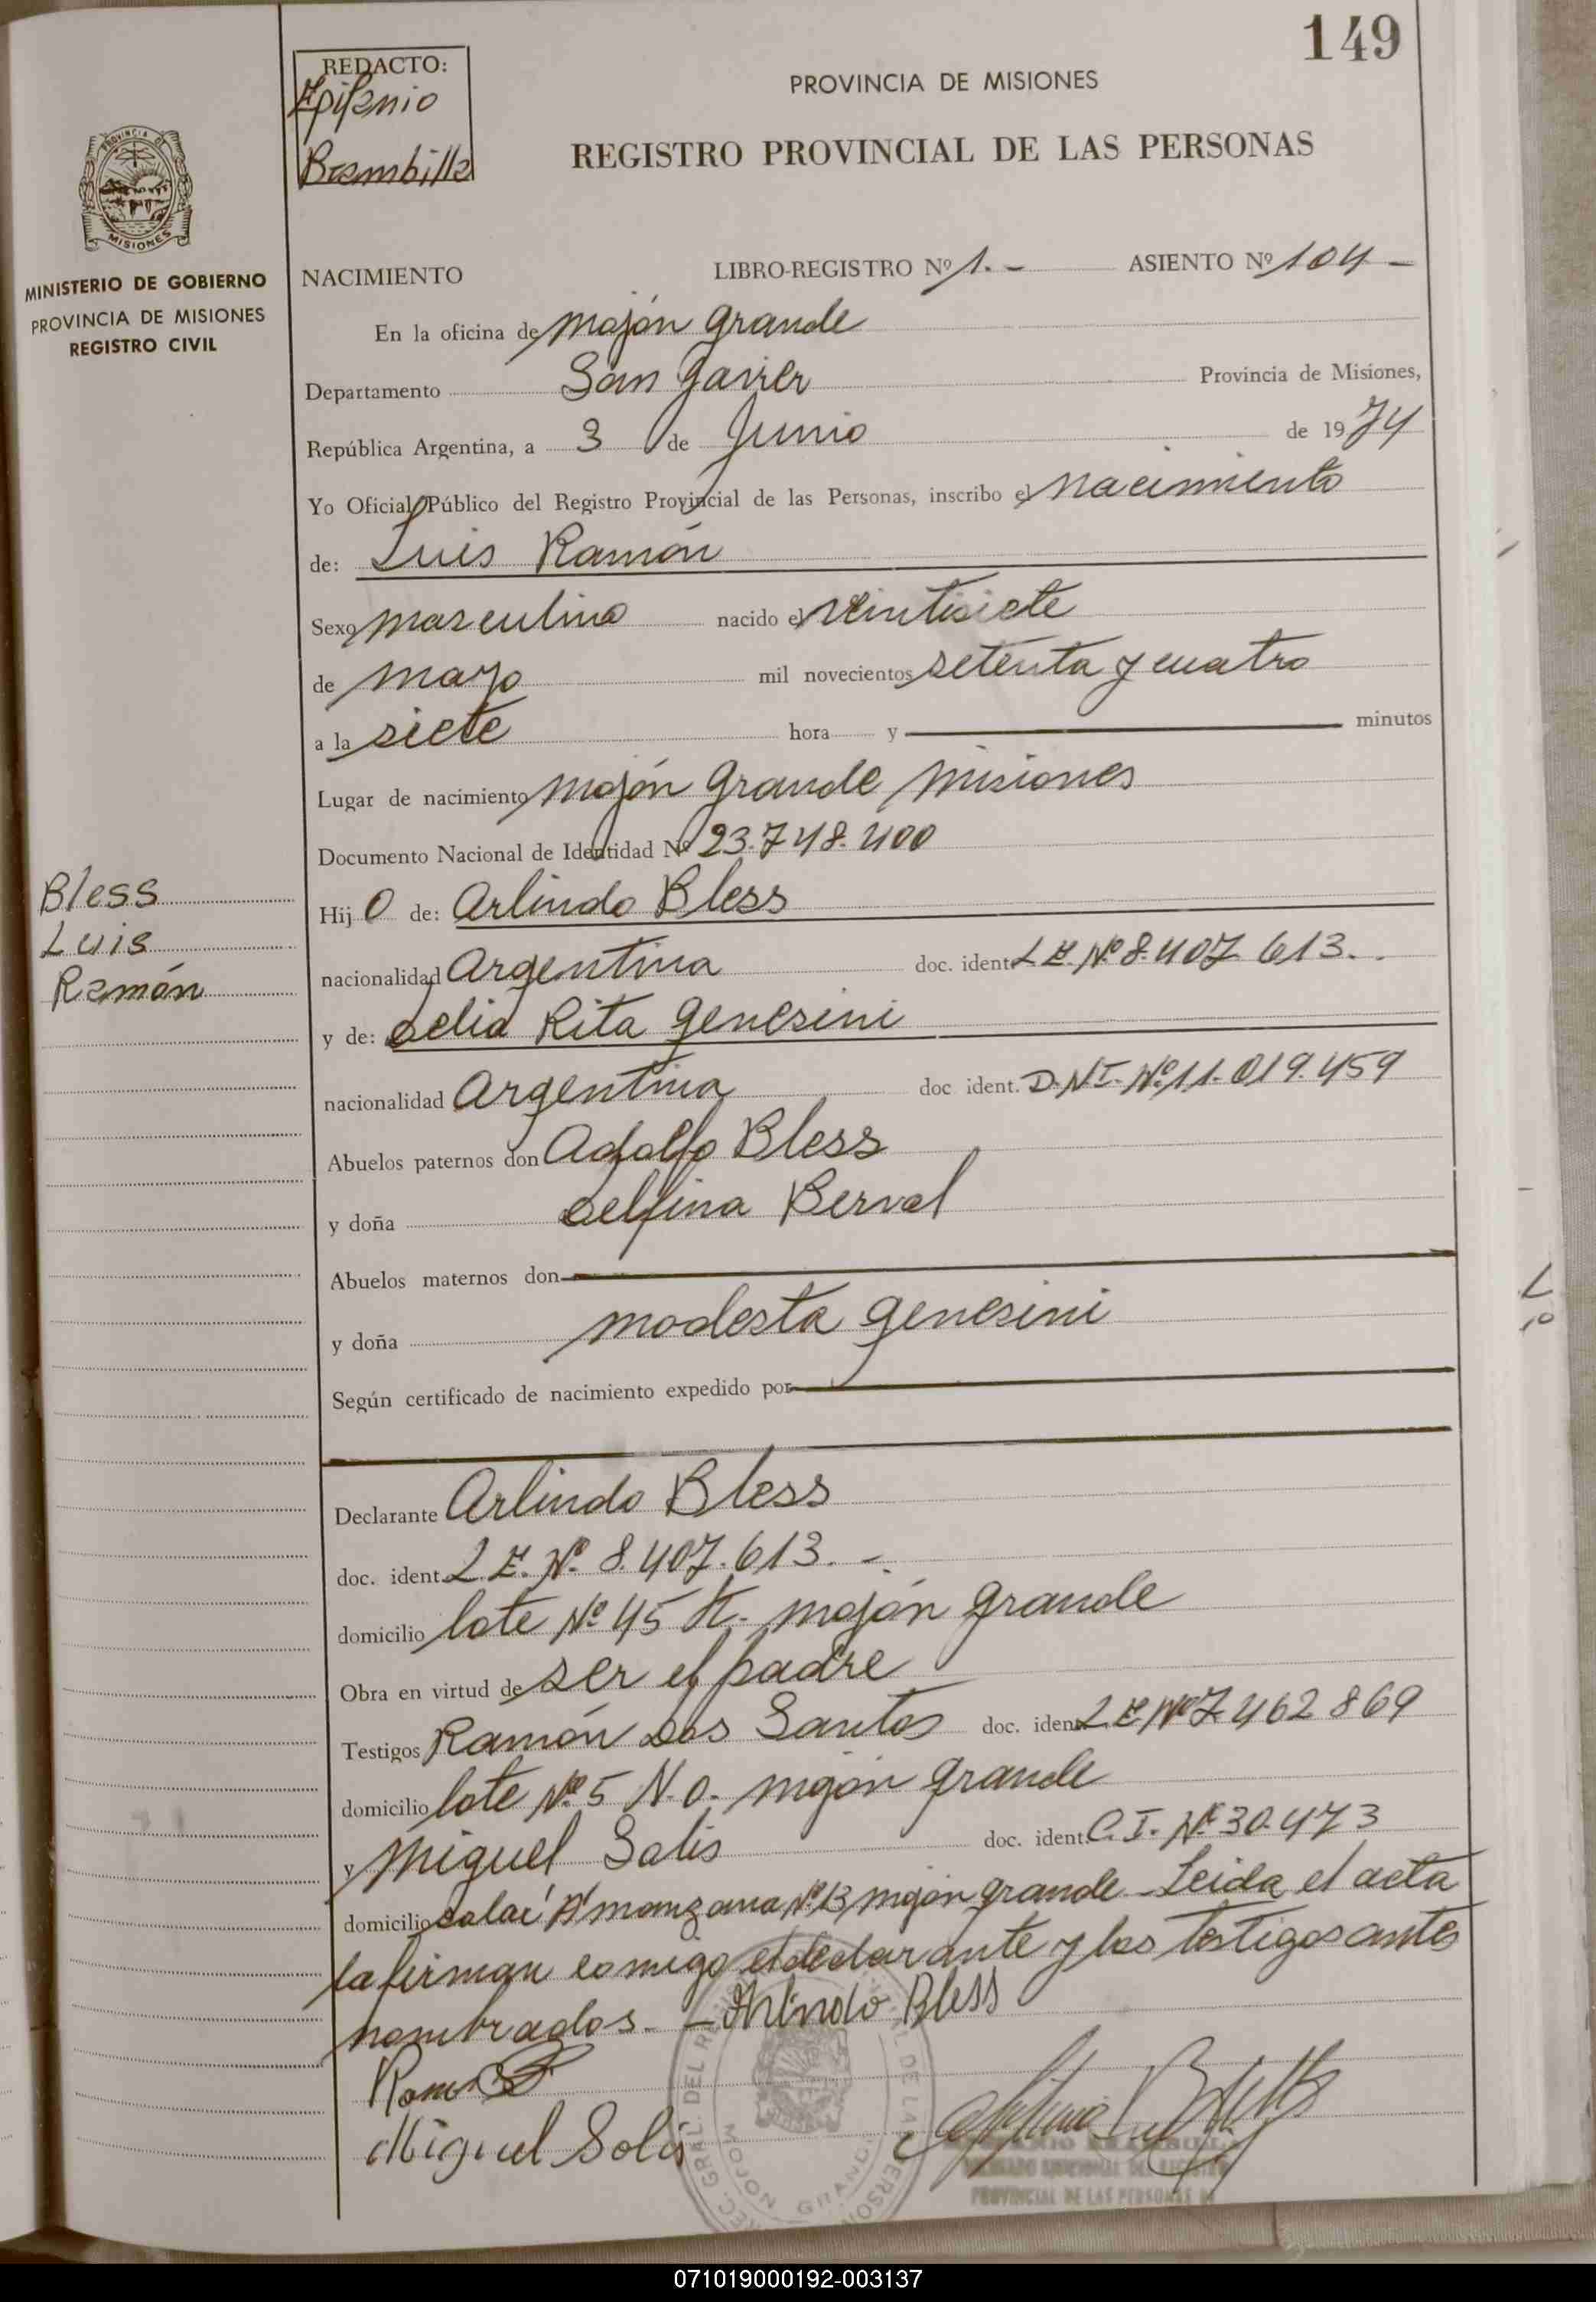 149
REDACTO:
Epifanio
Brambilla
PROVINCIA DE MISIONES
REGISTRO PROVINCIAL DE LAS PERSONAS
PROVINCIA DE
MISIONES
MINISTERIO DE GOBIERNO
PROVINCIA DE MISIONES
REGISTRO CIVIL
NACIMIENTO LIBRO-REGISTRO Nº 1.- ASIENTO Nº 104-
En la oficina de Mojón Grande
Departamento San Javier Provincia de Misiones,
República Argentina, a 3 de Junio de 1974
Yo Oficial Público del Registro Provincial de las Personas, inscribo el nacimiento
de: Luis Ramón
Sexo masculino nacido el veintisiete
de mayo mil novecientos setenta y cuatro
a la siete hora y minutos
Lugar de nacimiento Mojón Grande Misiones
Documento Nacional de Identidad Nº 23.748.400
Bless
Luis
Ramón
Hijo de: Arlindo Bless
nacionalidad Argentina doc. ident. L.E. Nº 8.407.613.
y de: Delia Rita Genesini
nacionalidad Argentina doc ident. D.N.I. Nº 11.019.459
Abuelos paternos don Adolfo Bless
y doña Delfina Berval
Abuelos maternos don
y doña Modesta Genesini
Según certificado de nacimiento expedido por
Declarante Arlindo Bless
doc. ident. L.E. Nº 8.407.613.-
domicilio lote Nº 45 Mojón Grande
Obra en virtud de ser el padre
Testigos Ramón Dos Santos doc. ident. L.E. Nº 7.462.869
domicilio lote Nº 5 N.O. Mojón Grande
y Miguel Solis doc. ident. C.I. Nº 30.473
domicilio manzana Nº 13 Mojón Grande - Leida el acta
la firman comigo el declarante y los testigos antes
nombrados. - Arlindo Bless
Miguel Solis
MOJON GRANDE
PROVINCIAL DE LAS PERSONAS
071019000192-003137